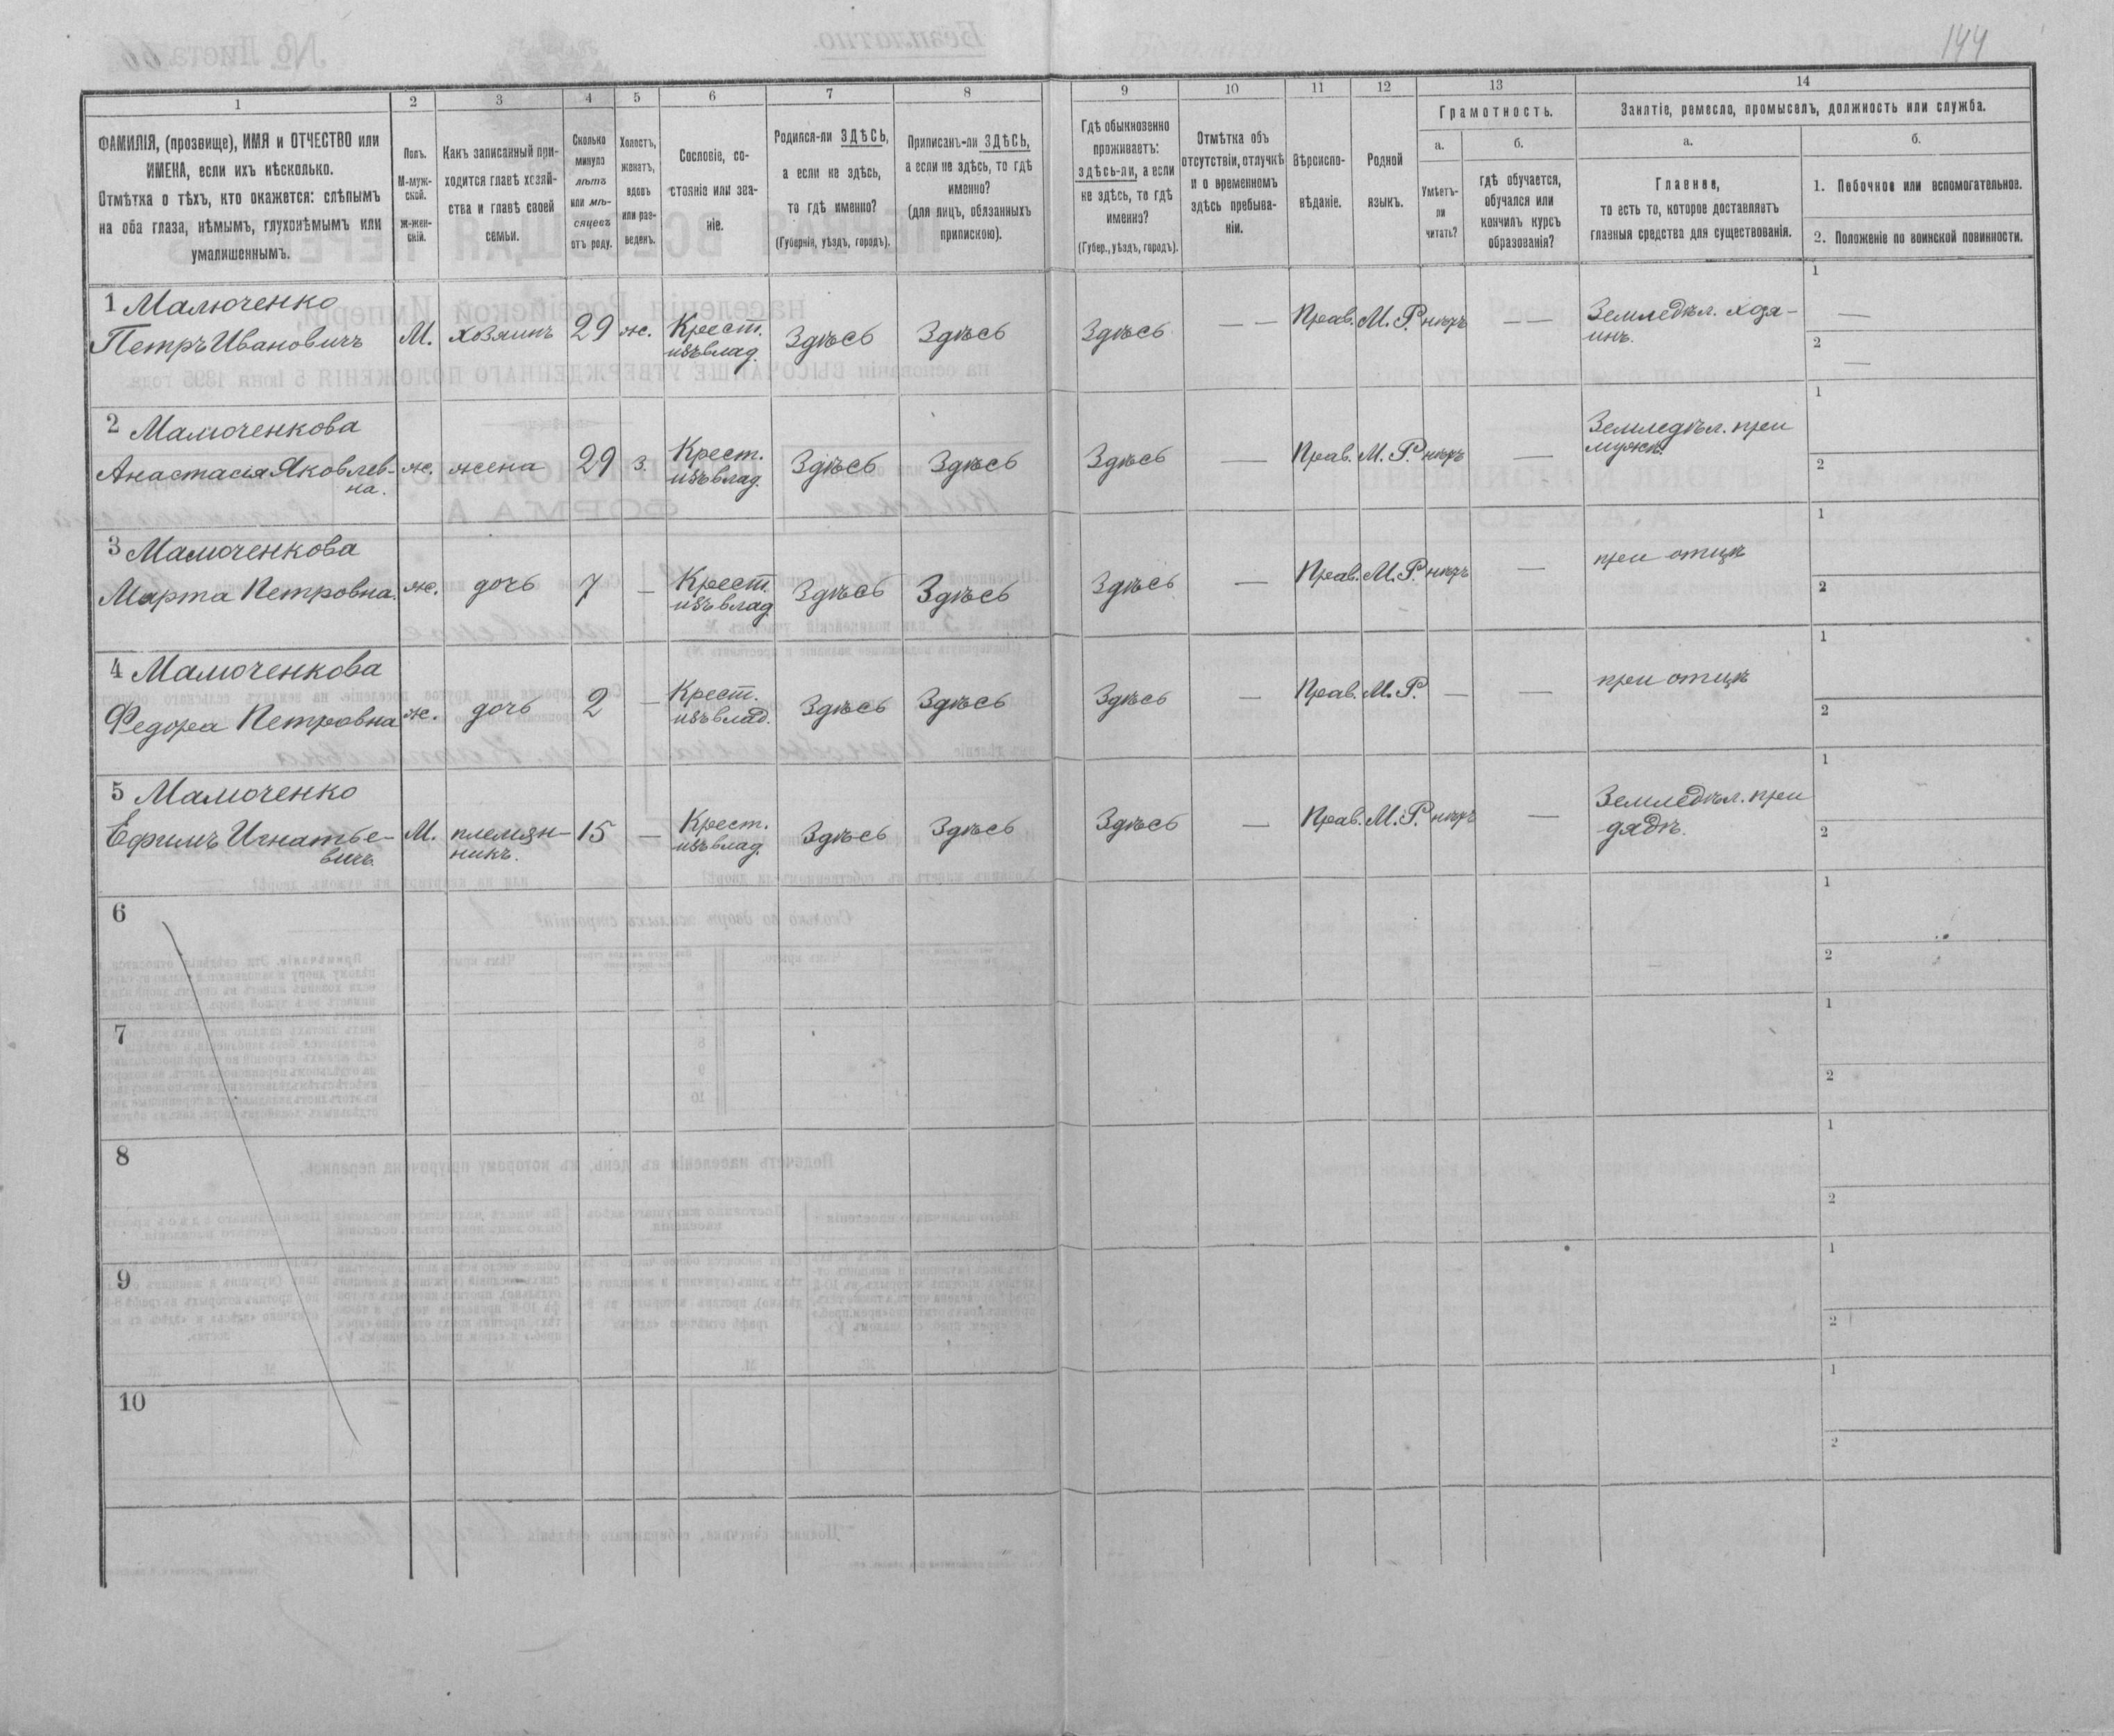 144
1 2 3 4 5 6 7 8 9 10 11 12 13 14
ФАМИЛІЯ, (прозвище), ИМЯ и ОТЧЕСТВО или
ИМЕНА, если ихъ нѣсколько.
Отмѣтка о тѣхъ, кто окажется: слѣпымъ
на оба глаза, нѣмымъ, глухонѣмымъ или
умалишеннымъ.
Полъ.
М-муж-
ской.
Ж-жен-
скій.
Какъ записанный при-
ходится главѣ хозяй-
ства и главѣ своей
семьи.
Сколько
минуло
лѣтъ
или мѣ-
сяцевъ
отъ роду.
Холостъ,
женатъ,
вдовъ
или раз-
веденъ.
Сословіе, со-
стояніе или зва-
ніе.
Родился-ли ЗДѢСЬ,
а если не здѣсь,
то гдѣ именно?
(Губернія, уѣздъ, городъ).
Приписанъ-ли ЗДѢСЬ,
а если не здѣсь, то гдѣ
именно?
(для лицъ, обязанныхъ
припискою).
Гдѣ обыкновенно
проживаетъ:
здѣсь-ли, а если
не здѣсь, то гдѣ
именно?
(Губер., уѣздъ, городъ).
Отмѣтка объ
отсутствіи, отлучкѣ
и о временномъ
здѣсь пребыва-
ніи.
Вѣроиспо-
вѣданіе.
Родной
языкъ.
Грамотность.
а.
Умѣетъ-
ли
читать?
б.
гдѣ обучается,
обучался или
кончилъ курсъ
образованія?
Занятіе, ремесло, промыселъ, должность или служба.
а.
Главное,
то есть то, которое доставляетъ
главныя средства для существованія.
б.
1. Побочное или вспомогательное.
2. Положеніе по воинской повинности.
1 Малюченко
Петръ Ивановичъ
М.
хозяинъ
29
ж.
Крест.
изъ влад.
Здѣсь
Здѣсь
Здѣсь
— —
Прав.
М. Р.
нѣтъ
— —
Земледѣл. хозя-
инъ.
1 —
2 —
2 Малюченкова
Анастасія Яковлев-
на.
ж.
жена
29
з.
Крест.
изъ влад.
Здѣсь
Здѣсь
Здѣсь
—
Прав.
М. Р.
нѣтъ
—
Земледѣл. при
мужѣ.
1
2
3 Малюченкова
Марта Петровна.
ж.
дочь
7
—
Крест.
изъ влад
Здѣсь
Здѣсь
Здѣсь
—
Прав.
М. Р.
нѣтъ
—
при отцѣ
1
2
4 Малюченкова
Федора Петровна
ж.
дочь
2
—
Крест.
изъ влад.
Здѣсь
Здѣсь
Здѣсь
—
Прав.
М. Р.
—
—
при отцѣ
1
2
5 Малюченко
Ефимъ Игнатье-
вичъ.
М.
племян-
никъ.
15
—
Крест.
изъ влад.
Здѣсь
Здѣсь
Здѣсь
—
Прав.
М. Р.
нѣтъ
—
Земледѣл. при
дядѣ.
1
2
6
1
2
7
1
2
8
1
2
9
1
2
10
1
2